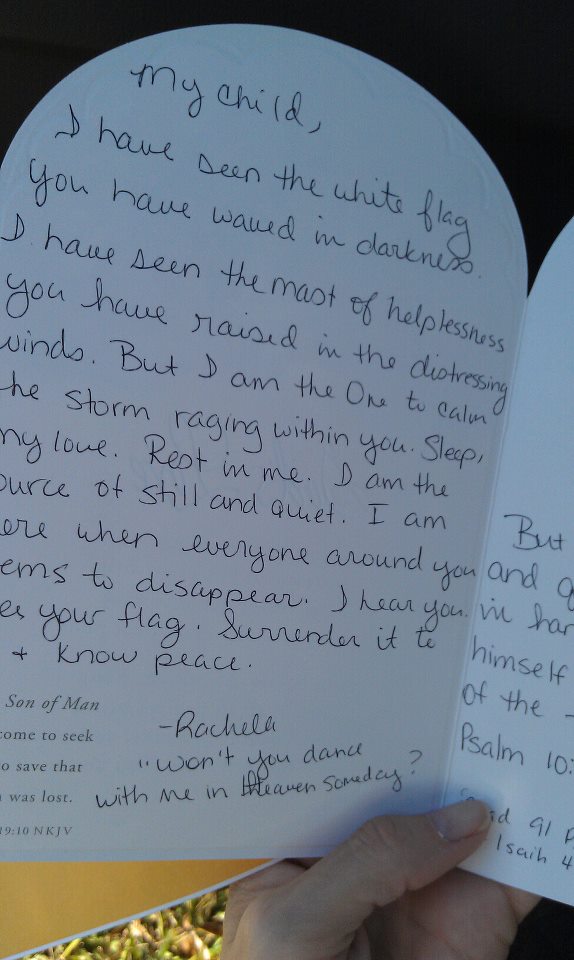 My child,
I have seen the white flag
you have waved in darkness.
I have seen the mast of helplessness
you have raised in the distressing
winds. But I am the One to calm
he storm raging within you. Sleep,
my love. Rest in me. I am the
ource of still and quiet. I am
ere when everyone around you
ems to disappear. I hear you.
your flag. Surrender it to
+ know peace.
-Rachela
"won't you dance
with me in Heaven someday?
Son of Man
come to seek
o save that
was lost.
19:10 NKJV
But
and
in har
himself
of the
Psalm 10:
91
Isaih 4